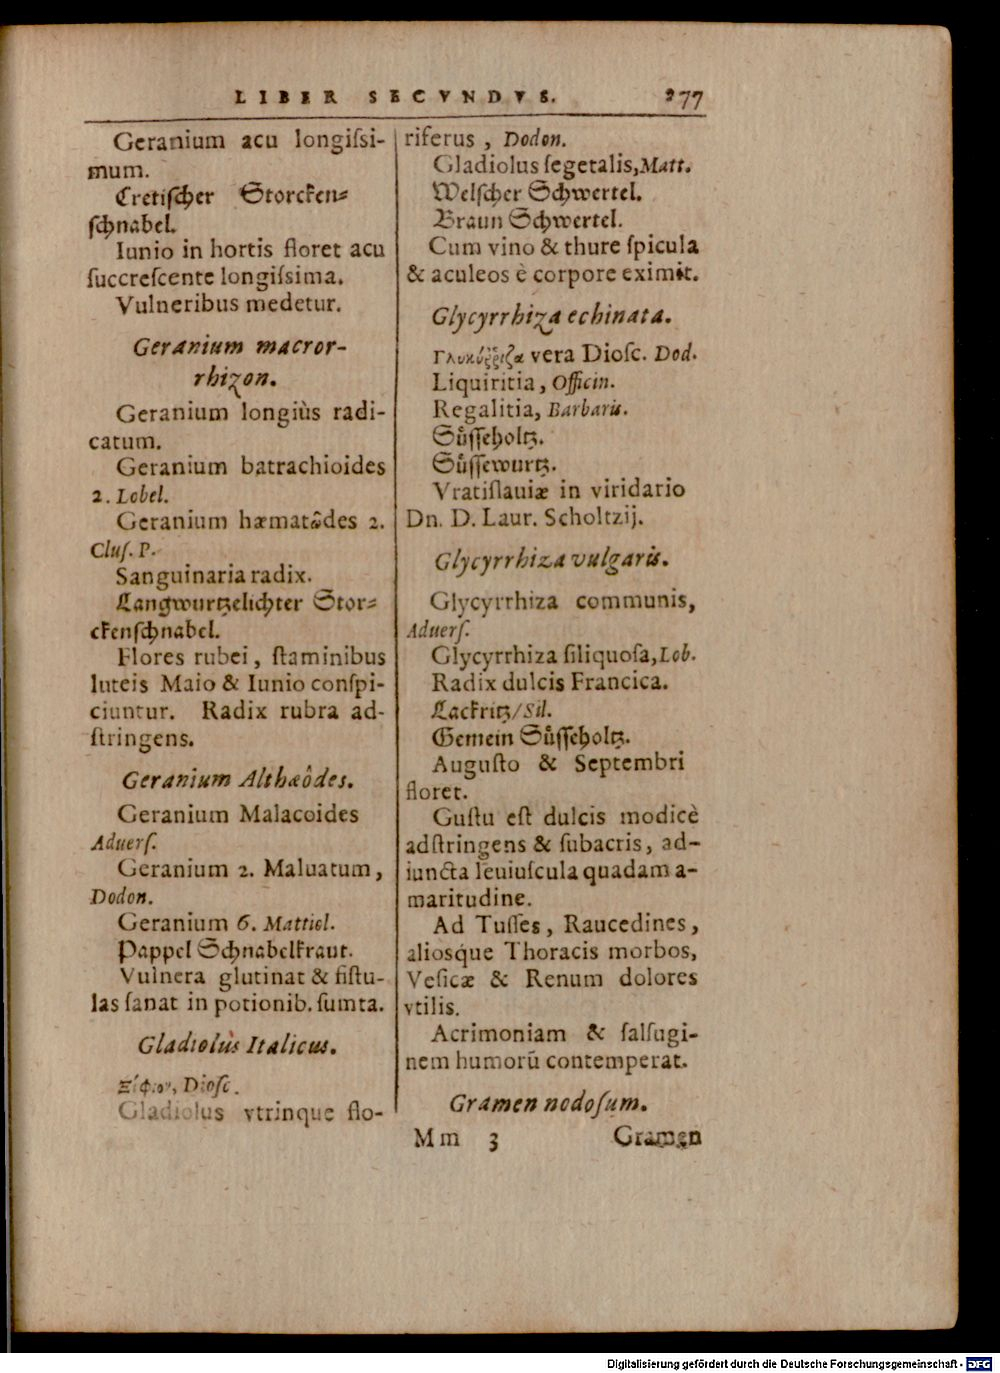 LIBER SECVNDVS. 277
Geranium acu longiſsi-
mum.
Cretiſcher Storcken⸗
ſchnabel.
Iunio in hortis floret acu
ſuccreſcente longiſsima.
Vulneribus medetur.
Geranium macror-
rhizon.
Geranium longiùs radi-
catum.
Geranium batrachioides
2. Lobel.
Geranium hæmatωdes 2.
Cluſ. P.
Sanguinaria radix.
Langwurtzelichter Stor⸗
ckenſchnabel.
Flores rubei, ſtaminibus
luteis Maio & Iunio conſpi-
ciuntur. Radix rubra ad-
ſtringens.
Geranium Althæôdes.
Geranium Malacoides
Aduerſ.
Geranium 2. Maluatum,
Dodon.
Geranium 6. Mattiol.
Pappel Schnabelkraut.
Vulnera glutinat & fiſtu-
las ſanat in potionib. ſumta.
Gladiolus Italicus.
Ξίφιον, Dioſc.
Gladiolus vtrinque flo-
riferus, Dodon.
Gladiolus ſegetalis, Matt.
Welſcher Schwertel.
Braun Schwertel.
Cum vino & thure ſpicula
& aculeos è corpore eximit.
Glycyrrhiza echinata.
Γλυκύῤῥιζα vera Dioſc. Dod.
Liquiritia, Officin.
Regalitia, Barbaris.
Suͤſſeholtz.
Suͤſſewurtz.
Vratiſlauiæ in viridario
Dn. D. Laur. Scholtzij.
Glycyrrhiza vulgaris.
Glycyrrhiza communis,
Aduerſ.
Glycyrrhiza ſiliquoſa, Lob.
Radix dulcis Francica.
Lackritz/ Sil.
Gemein Suͤſſeholtz.
Auguſto & Septembri
floret.
Guſtu eſt dulcis modicè
adſtringens & ſubacris, ad-
iuncta leuiuſcula quadam a-
maritudine.
Ad Tuſſes, Raucedines,
aliosque Thoracis morbos,
Veſicæ & Renum dolores
vtilis.
Acrimoniam & ſalſugi-
nem humorū contemperat.
Gramen nodoſum.
Mm 3 Gramen
Digitalisierung gefördert durch die Deutsche Forschungsgemeinschaft - DFG